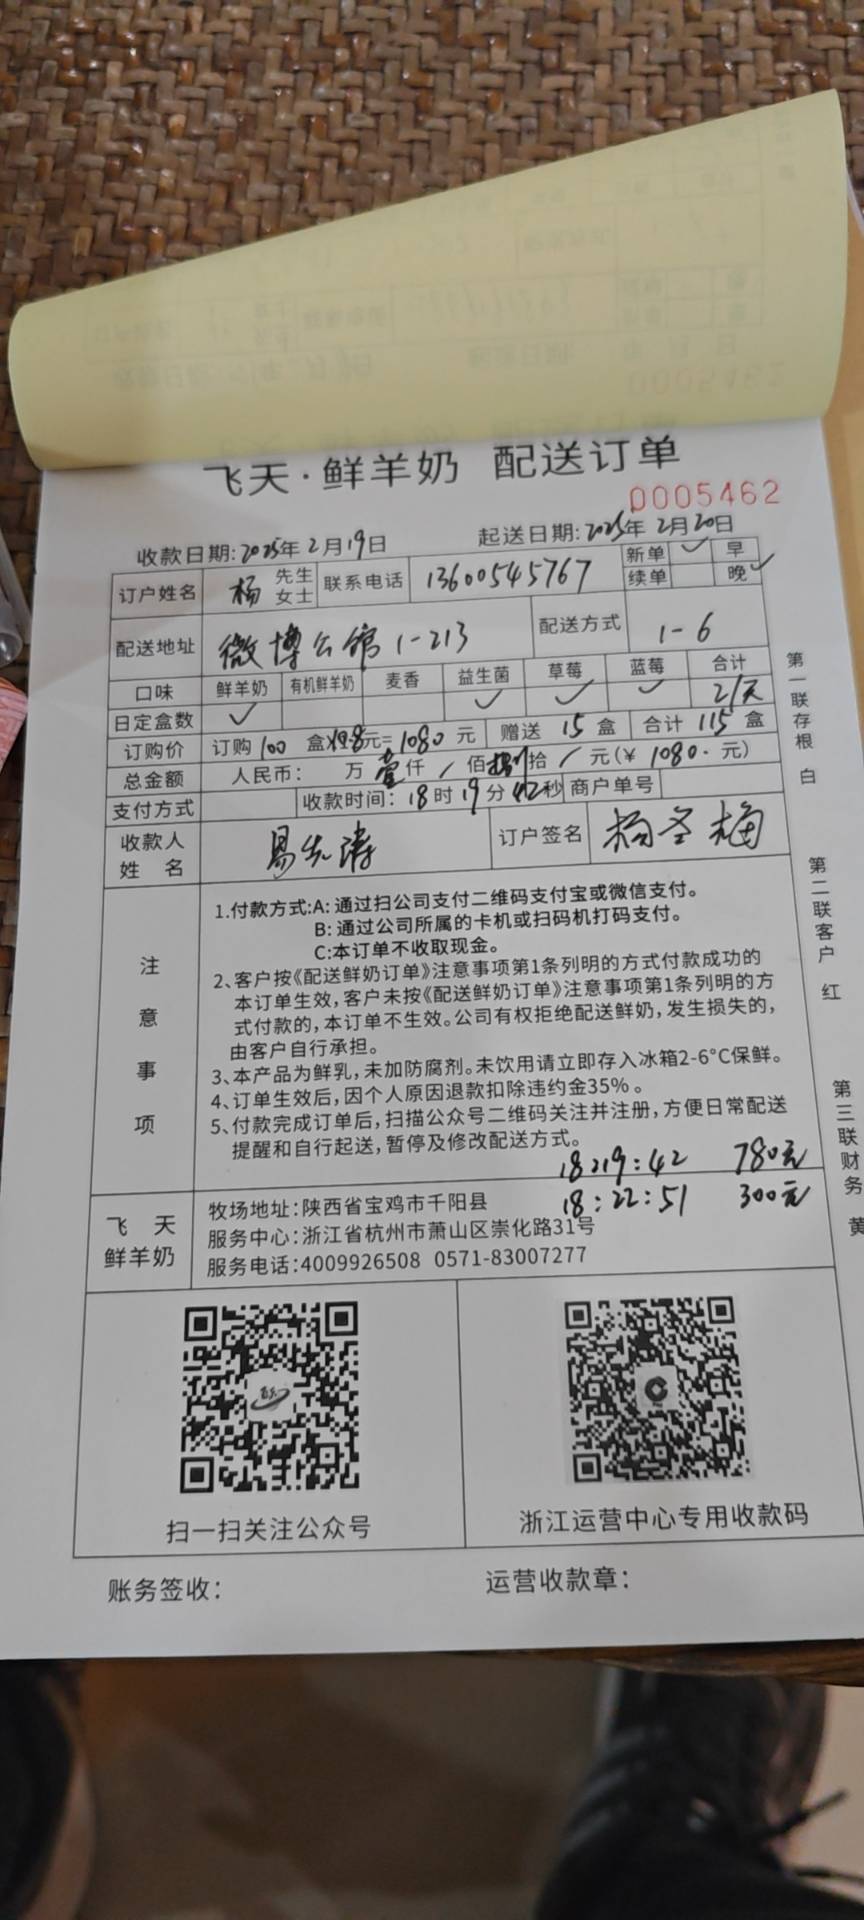 飞天·鲜羊奶 配送订单
0005462
收款日期:2025年2月19日 起送日期:2025年2月20日
订户姓名 杨 先生 女士 联系电话 13600545767 新单 ✓ 早
续单 晚 ✓
配送地址 微博公馆1-213 配送方式 1-6
口味 鲜羊奶 有机鲜羊奶 麦香 益生菌 草莓 蓝莓 合计
日定盒数 ✓ ✓ ✓ ✓ 2/天
订购价 订购100盒×10.8元=1080元 赠送15盒 合计115盒
总金额 人民币: 万壹仟/佰捌拾/元(¥1080.元)
支付方式 收款时间:18时19分42秒 商户单号
收款人姓名 易先涛 订户签名 杨圣梅
注意事项
1.付款方式:A:通过扫公司支付二维码支付宝或微信支付。
B:通过公司所属的卡机或扫码机打码支付。
C:本订单不收取现金。
2、客户按《配送鲜奶订单》注意事项第1条列明的方式付款成功的
本订单生效,客户未按《配送鲜奶订单》注意事项第1条列明的方
式付款的,本订单不生效。公司有权拒绝配送鲜奶,发生损失的,
由客户自行承担。
3、本产品为鲜乳,未加防腐剂。未饮用请立即存入冰箱2-6°C保鲜。
4、订单生效后,因个人原因退款扣除违约金35%。
5、付款完成订单后,扫描公众号二维码关注并注册,方便日常配送
提醒和自行起送,暂停及修改配送方式。
18:19:42 780元
18:22:51 300元
飞天鲜羊奶
牧场地址:陕西省宝鸡市千阳县
服务中心:浙江省杭州市萧山区崇化路31号
服务电话:4009926508 0571-83007277
扫一扫关注公众号 浙江运营中心专用收款码
账务签收: 运营收款章:
第一联存根 白
第二联客户 红
第三联财务 黄